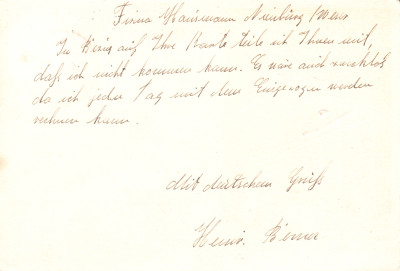 Firma Hausmann Nienburg / Weser
In Bezug auf Ihre Karte teile ich Ihnen mit,
daß ich nicht kommen kann. Es wäre auch zwecklos
da ich jeden Tag mit dem Eingezogen werden
rechnen kann.
Mit deutschem Gruß
Heinr.